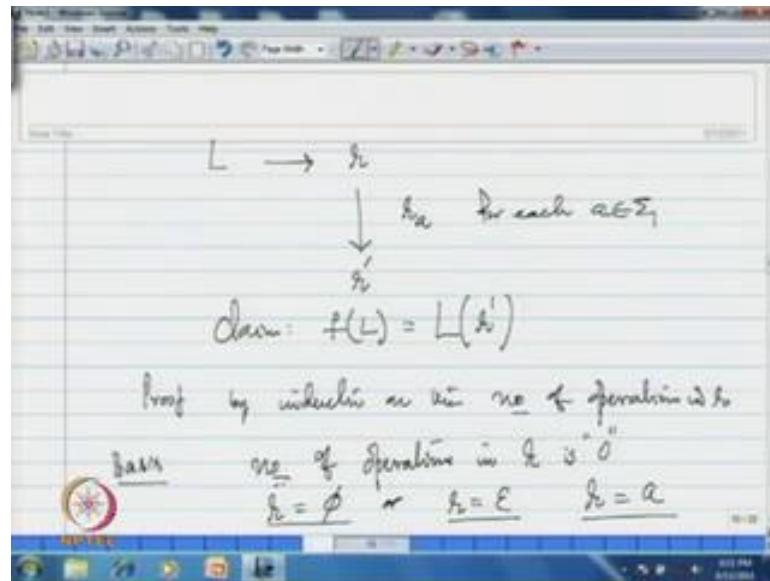 L → r
r_a for each a ∈ Σ_1
r'
Claim: f(L) = L(r')
Proof by induction on the no of operations in r
Basis no of operations in r is "0"
r = φ or r = ε r = a
NPTEL